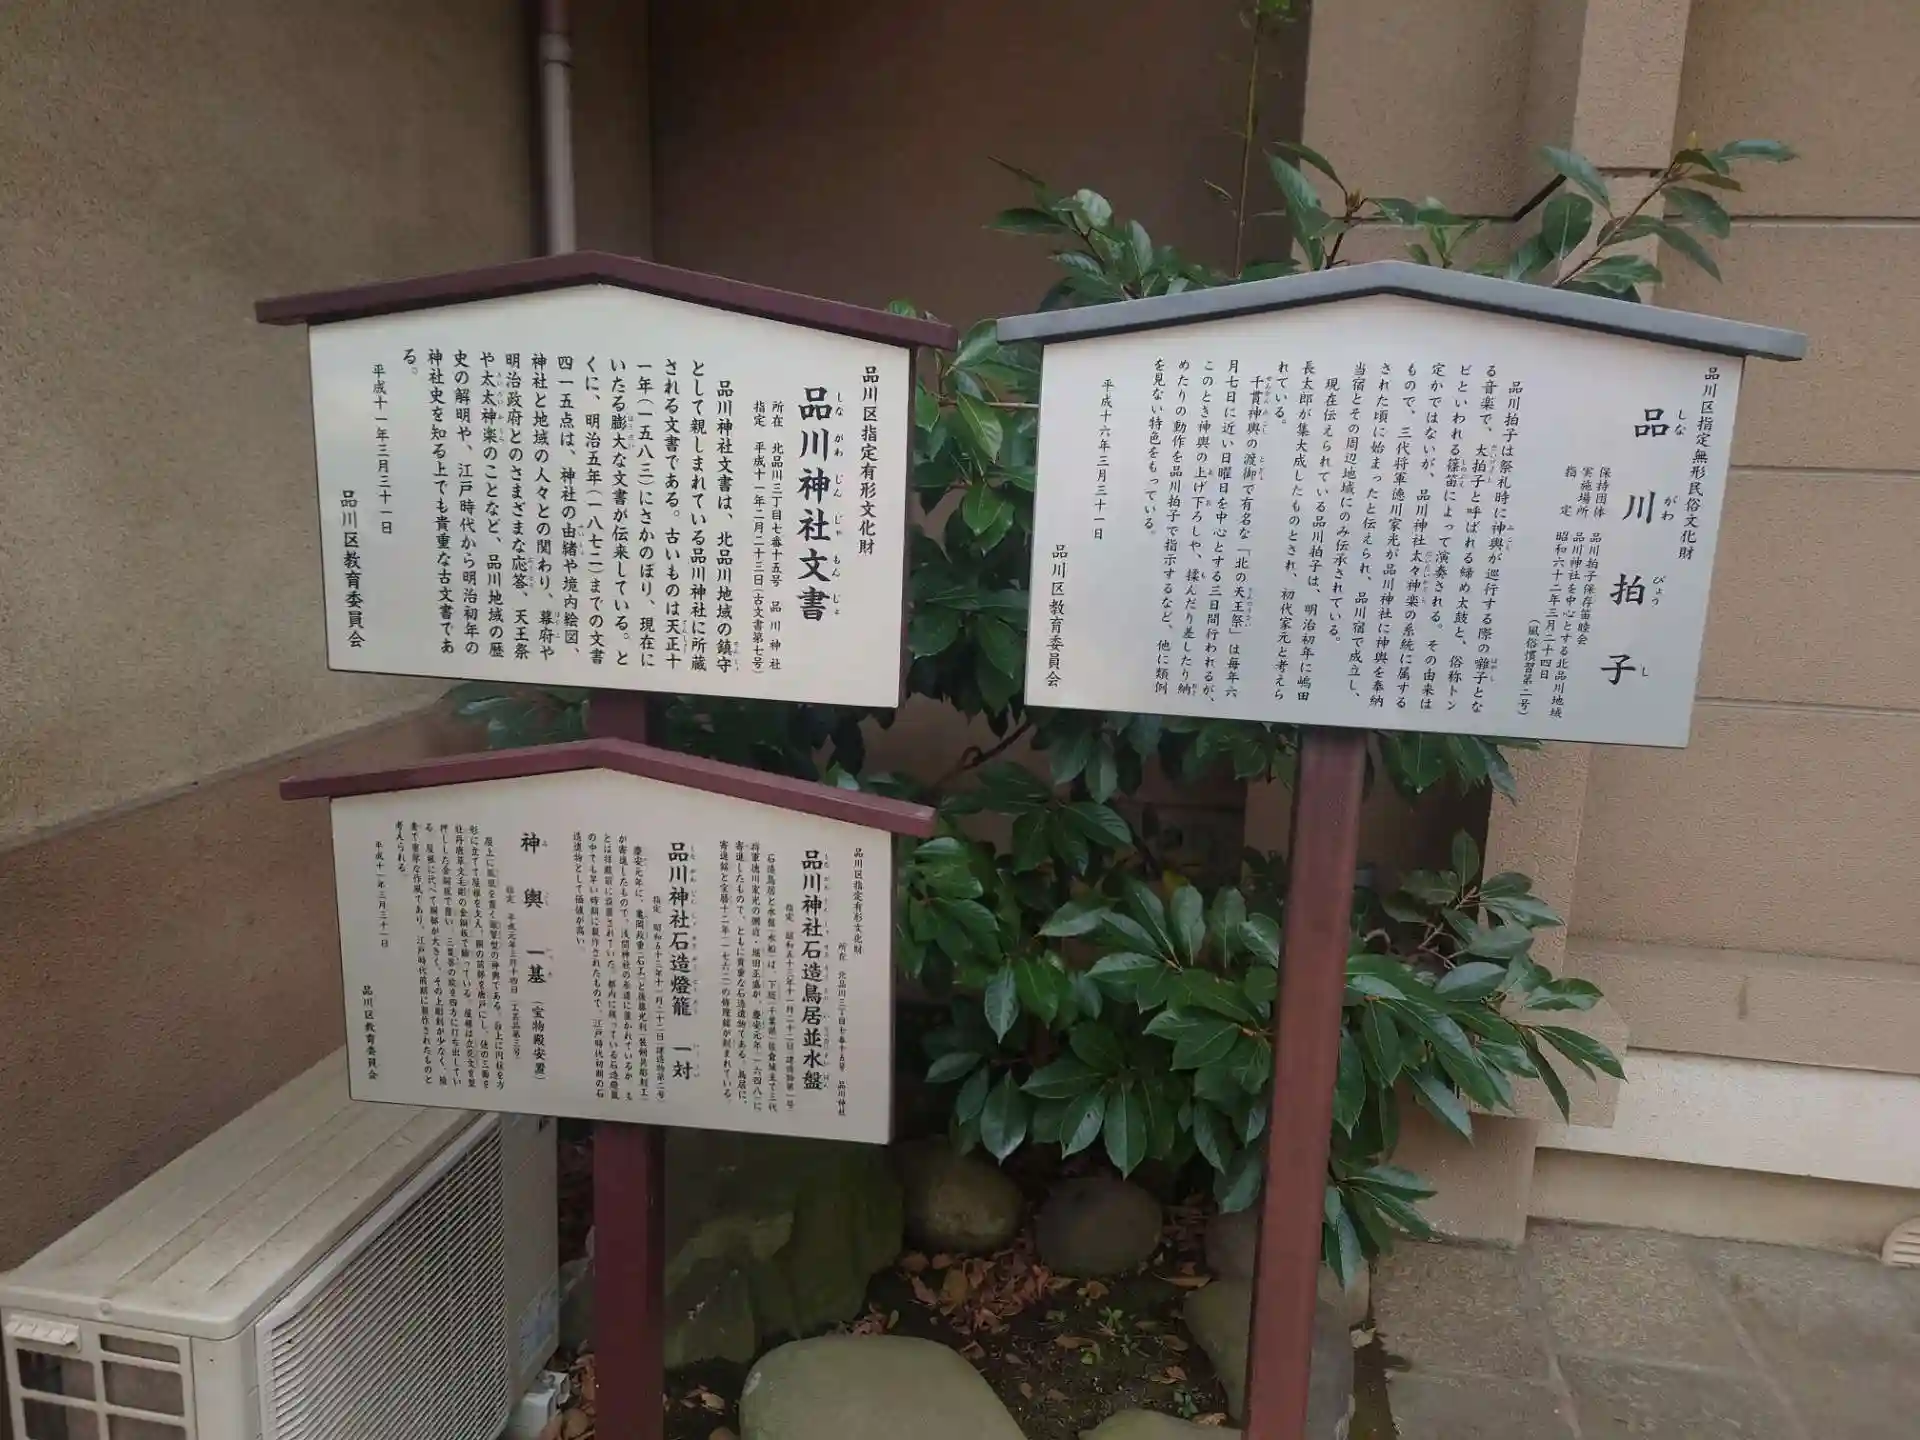 品川区指定有形文化財
品川神社文書
しながわじんじゃもんじょ
所在 北品川三丁目七番十五号 品川神社
指定 平成十一年二月二十三日(古文書第七号)
品川神社文書は、北品川地域の鎮守
として親しまれている品川神社に所蔵
される文書である。古いものは天正十
一年(一五八三)にさかのぼり、現在に
いたる膨大な文書が伝来している。と
くに、明治五年(一八七二)までの文書
四一五点は、神社の由緒や境内絵図、
神社と地域の人々との関わり、幕府や
明治政府とのさまざまな応答、天王祭
や太太神楽のことなど、品川地域の歴
史の解明や、江戸時代から明治初年の
神社史を知る上でも貴重な古文書であ
る。
平成十一年三月三十一日
品川区教育委員会
品川区指定無形民俗文化財
品川拍子
しながわびょうし
保持団体 品川拍子保存笛睦会
実施場所 品川神社を中心とする北品川地域
指定 昭和六十二年三月二十四日
(風俗慣習第二号)
品川拍子は祭礼時に神輿が巡行する際の囃子とな
る音楽で、大拍子と呼ばれる締め太鼓と、俗称トン
ビといわれる篠笛によって演奏される。その由来は
定かではないが、品川神社太々神楽の系統に属する
もので、三代将軍徳川家光が品川神社に神輿を奉納
された頃に始まったと伝えられ、品川宿で成立し、
当宿とその周辺地域にのみ伝承されている。
現在伝えられている品川拍子は、明治初年に嶋田
長太郎が集大成したものとされ、初代家元と考えら
れている。
千貫神輿の渡御で有名な「北の天王祭」は毎年六
月七日に近い日曜日を中心とする三日間行われるが、
このとき神輿の上げ下ろしや、揉んだり差したり納
めたりの動作を品川拍子で指示するなど、他に類例
を見ない特色をもっている。
平成十六年三月三十一日
品川区教育委員会
品川区指定有形文化財
所在 北品川三丁目七番十五号 品川神社
品川神社石造鳥居並水盤
指定 昭和五十三年十一月二十二日(建造物第一号)
石造鳥居と水盤(水船)は、下総(千葉県)佐倉城主で三代
将軍徳川家光の側近・堀田正盛が、慶安元年(一六四八)に
寄進したもので、ともに貴重な石造遺物である。鳥居に、
寄進銘と宝暦十二年(一七六二)の修理銘が刻まれている。
品川神社石造燈籠 一対
指定 昭和五十三年十一月二十二日(建造物第二号)
慶安元年に、亀岡政重(石工)と後藤光利(装剣具彫刻工)
が寄進したもので、浅間神社の参道に置かれているが、も
とは拝殿前に設置されていた。都内に残っている石造燈籠
の中でも早い時期に製作されたもので、江戸時代初期の石
造遺物として価値が高い。
神輿 一基(宝物殿安置)
指定 平成元年三月十四日(工芸品第三号)
考えられる。
平成十一年三月三十一日
品川区教育委員会